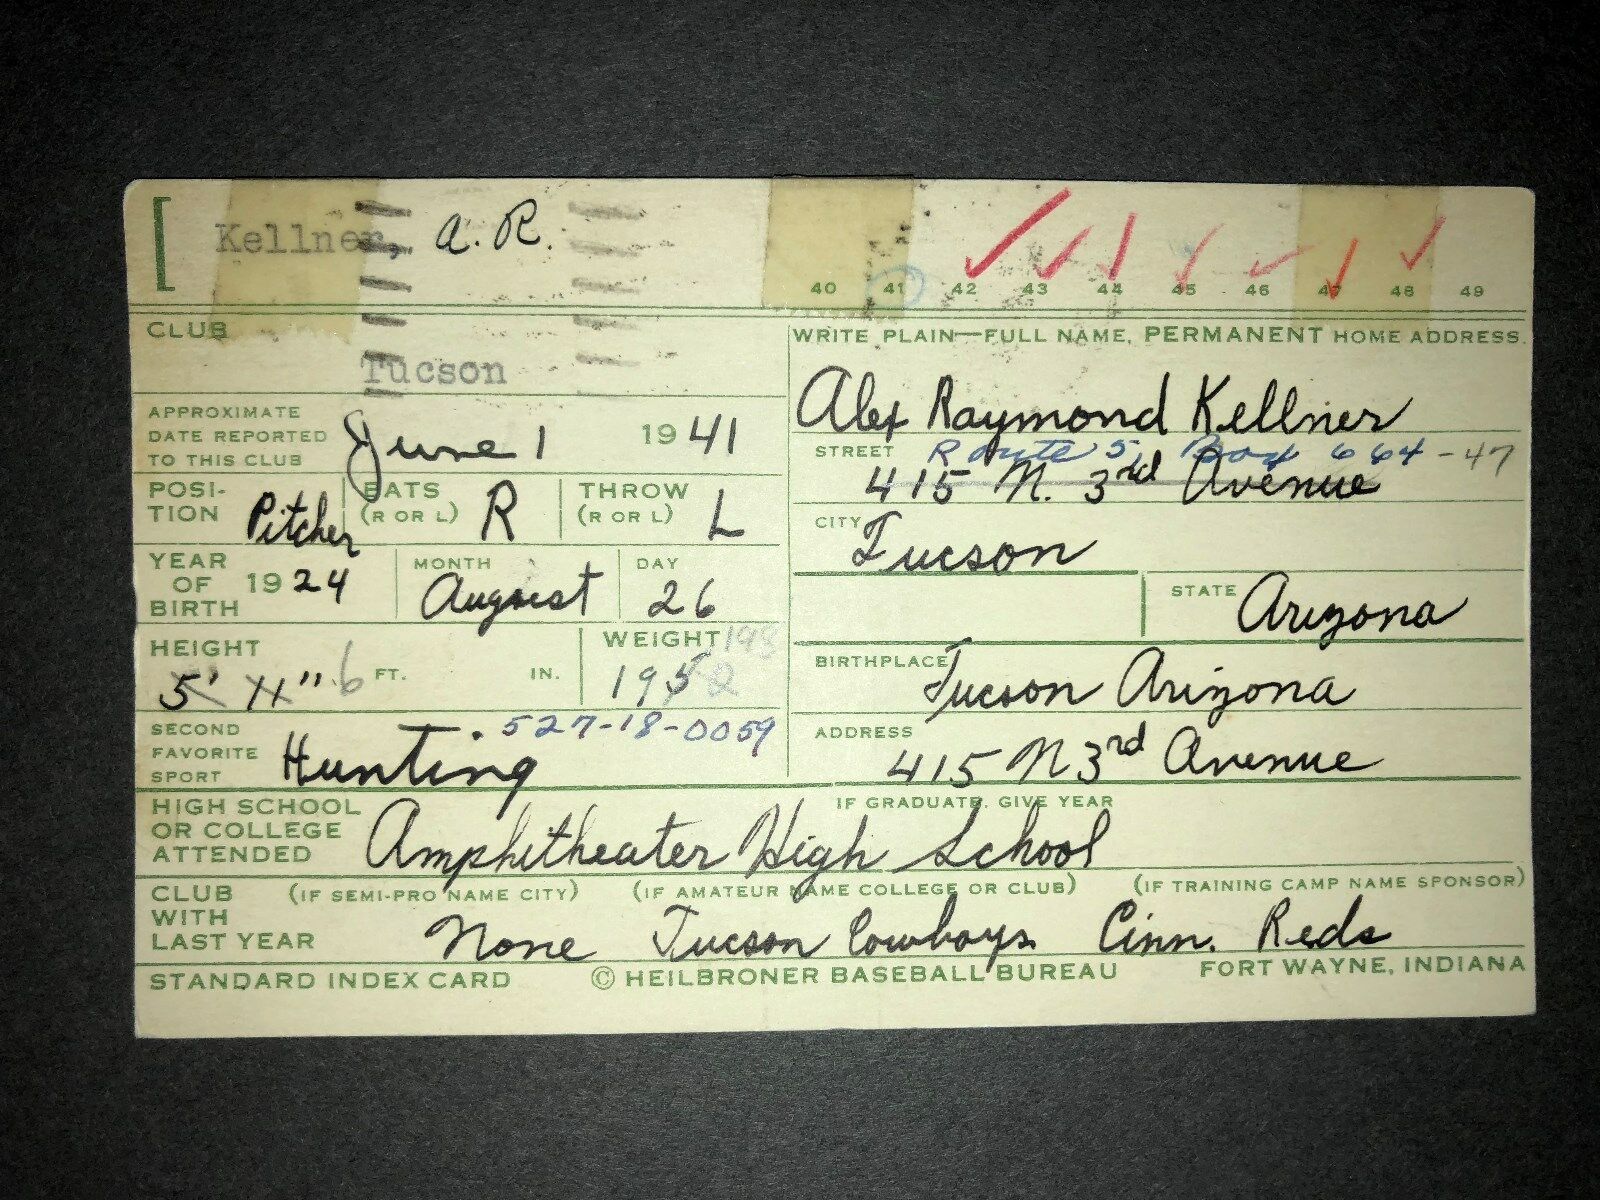 Kellner, A. R.
40 41 42 43 44 45 46 47 48 49
CLUB
Tucson
WRITE PLAIN—FULL NAME, PERMANENT HOME ADDRESS.
Alex Raymond Kellner
APPROXIMATE
DATE REPORTED
TO THIS CLUB
June 1 1941
STREET Route 5, Box 664 -47
415 N. 3rd Avenue
POSI-
TION Pitcher
BATS
(R OR L) R
THROW
(R OR L) L
CITY Tucson
YEAR
OF
BIRTH 1924
MONTH
August
DAY
26
STATE Arizona
HEIGHT
5' 11" 6 FT. IN.
WEIGHT 198
195
BIRTHPLACE Tucson Arizona
SECOND
FAVORITE
SPORT Hunting
527-18-0059
ADDRESS
415 N 3rd Avenue
HIGH SCHOOL
OR COLLEGE
ATTENDED
IF GRADUATE, GIVE YEAR
Amphitheater High School
CLUB
WITH
LAST YEAR
(IF SEMI-PRO NAME CITY) (IF AMATEUR NAME COLLEGE OR CLUB) (IF TRAINING CAMP NAME SPONSOR)
None Tucson Cowboys Cinn. Reds
STANDARD INDEX CARD © HEILBRONER BASEBALL BUREAU FORT WAYNE, INDIANA